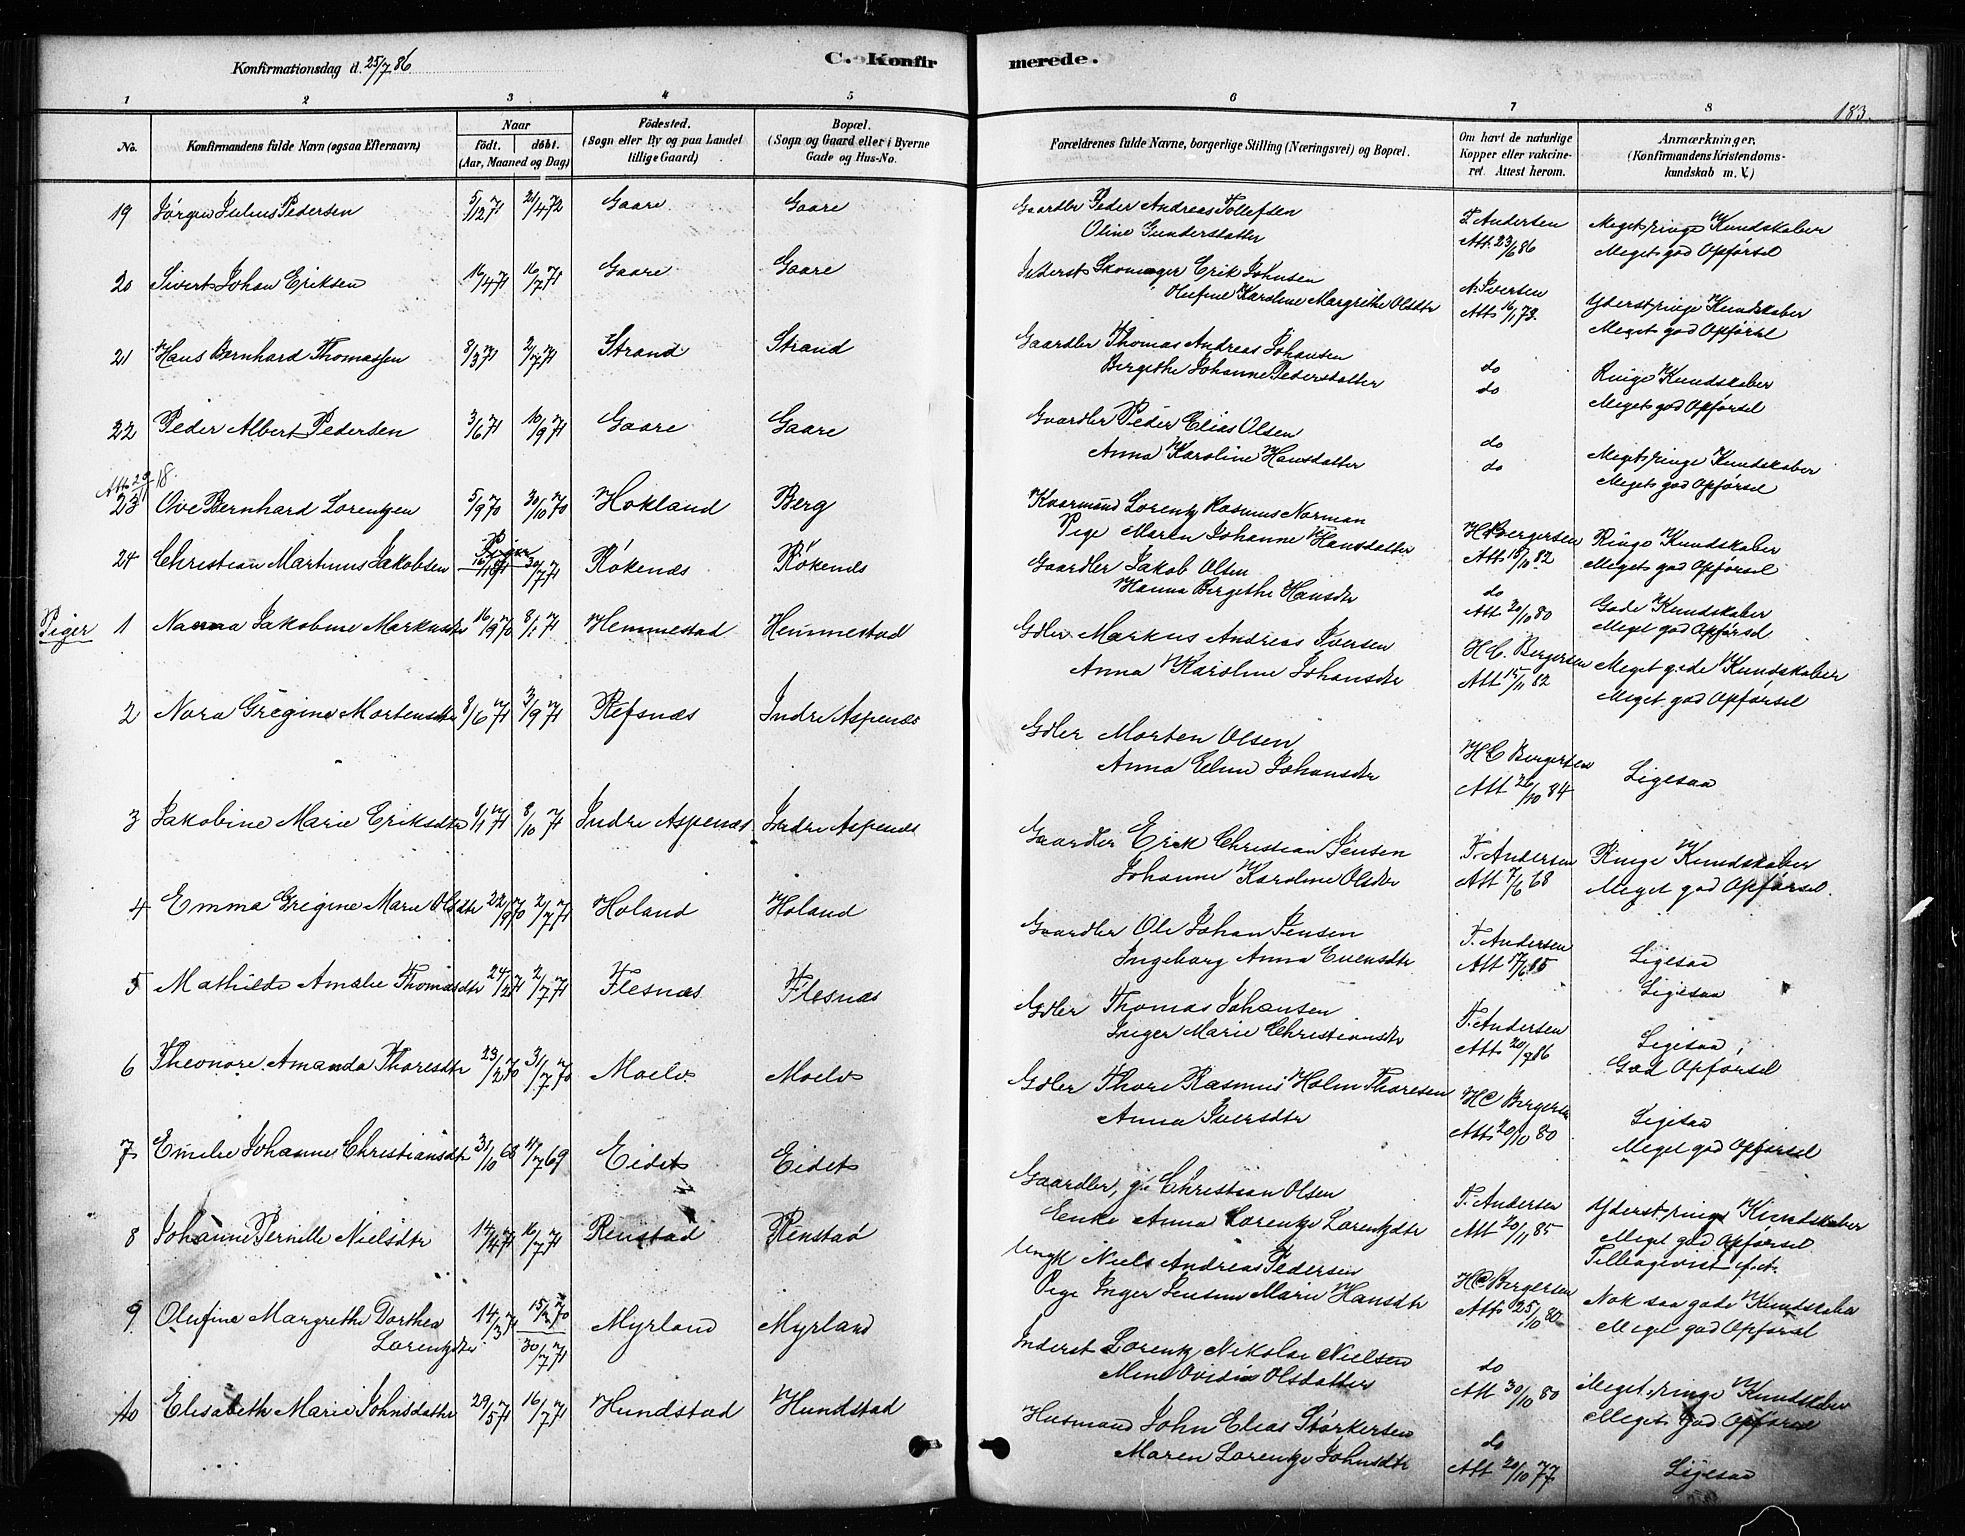 Konfirmationsdag d. 25/7 86
C. Konfirmerede.
183.
1 2 3 4 5 6 7 8
No. Konfirmandens fulde Navn (ogsaa Efternavn) Naar födt. döbt. (Aar, Maaned og Dag) Födested. (Sogn eller By og paa Landet tillige Gaard) Bopæl. (Sogn og Gaard eller i Byerne Gade og Hus-No. Forældrenes fulde Navne, borgerlige Stilling (Næringsvei) og Bopæl. Om havt de naturlige Kopper eller vakcineret. Attest herom. Anmærkninger. (Konfirmandens Kristendomskundskab m. V.)
19 Jörgen Julius Pedersen 5/12 71 21/4 72 Gaare Gaare Gaardbr Peder Andreas Tollefsen F. Andersen Meget ringe Kundskaber
Oline Gundersdatter Att. 23/6 86 Meget god Opförsel
20 Sivert Johan Eriksen 16/4 71 16/7 71 Gaare Gaare Inderst Skomager Erik Johnsen A. Iversen Yderst ringe Kundskaber
Olufine Karoline Margrethe Olsdtr Att 16/1 73. Meget god Opförsel
21 Hans Bernhard Thomassen 8/3 71 2/7 71 Strand Strand Gaardbr Thomas Andreas Johansen do Ringe Kundskaber
Bergethe Johanne Pedersdatter do Meget god Opförsel
22 Peder Albert Pedersen 3/6 71 10/9 71 Gaare Gaare Gaardbr Peder Elias Olsen do Meget ringe Kundskaber
Anna Karoline Hansdatter do Meget god Opförsel
23 Ove Bernhard Lorentzen 5/9 70 30/10 70 Hokland Berg Kvarmand Lorentz Rasmus Norman H Bergersen Ringe Kundskaber
Pige Maren Johanne Hansdatter Att 15/10 82 Meget god Opförsel
24 Christian Martinus Jakobsen 30/7 71 Rökenæs Rökenæs Gaardbr Jakob Olsen do Gode Kundskaber
Hanna Bergethe Hansdtr Att 20/10 80 Meget god Opförsel
Piger 1 Nanna Jakobine Markusdtr 16/9 70 8/1 71 Hemmestad Hemmestad Gdbr. Markus Andreas Iversen H C. Bergersen Meget gode Kundskaber
Anna Karoline Johansdtr Att 15/11 82 Meget god Opförsel
2 Nora Gregine Mortensdtr 8/6 71 3/9 71 Refsnæs Indre Aspenæs Gdbr Morten Olsen H C Bergersen Ligesaa
Anna Elen Johansdtr Att 26/10 84
3 Jakobine Marie Eriksdtr 8/1 71 8/10 71 Indre Aspenæs Indre Aspenæs Gaardbr Erik Christian Jensen F. Andersen Ringe Kundskaber
Johanne Karoline Olsdtr Att 7/6 68 Meget god Opförsel.
4 Emma Gregine Marie Olsdtr 22/9 70 2/7 71 Holand Holand Gaardbr Ole Johan Jensen F. Andersen Ligesaa
Ingeborg Anna Evensdtr Att 17/6 85 Ligesaa
5 Mathilde Amalie Thomasdtr 24/2 71 2/7 71 Flesnæs Flesnæs Gdbr Thomas Johansen F. Andersen Ligesaa
Inger Marie Christiansdtr Att 20/7 86 God Opförsel
6 Theonore Amanda Thoresdtr 23/2 70 31/7 70 Moelv Moelv Gdbr Thore Rasmus Holm Thoresen H C Bergersen Ligesaa
Anna Iversdtr Att 20/10 80 Meget god Opförsel
7 Emelie Johanne Christiansdtr 31/10 68 11/7 69 Eidet Eidet Gaardbr, Christian Olsen F. Andersen Yderst ringe Kundskaber
Enke Anna Lorentze Lorentzdtr Att 20/11 85 Meget god Opförsel
8 Johanne Pernille Nielsdtr 14/4 71 16/7 71 Renstad Renstad Ungk Niels Andreas Pedersen H C Bergersen Nok saa gode Kundskaber
Pige Inger Jensine Marie Hansdtr Att 25/10 80 Meget god Opförsel
9 Olufine Margrethe Dorthea 14/3 71 Myrland Myrland Inderst Lorentz Nikolai Nielsen do Meget ringe Kundskaber
Lorentzdtr 30/7 71 Olsdatter Att 30/10 80 Meget god Opförsel
10 Elisabeth Marie Johnsdatter 29/5 71 16/7 71 Hundstad Hundstad Husmand John Elias Störkersen do Ligesaa
Maren Lorentze Johnsdtr Att 20/10 77